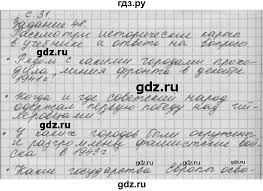 гдз.ру
с 31
Задание 48.
Рассмотри исторические карты
в учебнике и ответь на вопросы
• Рядом с какими городами прохо-
дила линия фронта в декабре
1941 г?
• Когда и где советский народ
одержал первую победу над гит-
леровцами?
• У каких городов были окружены
и разгромлены фашистские вой-
ска в 1943 г.
• Какие государства Европы осво-
gdz.ru